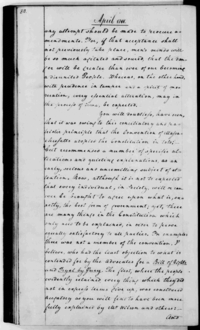 April 1788
any attempt should be made to receive a-
mendments. For, if that acceptance shall
not previously take place, men's minds will
be so much agitated and soured, that the dan-
ger will be greater than ever of our becoming
a disunited People. Whereas, on the other hand,
with prudence in temper and a spirit of mod-
eration, every essential alteration, may in
the process of time, be expected.
You will doubtless, have seen,
that it was owing to this conciliatory and pa-
triotic principle that the Convention of Massa-
chusetts adopted the constitution, in toto;
but recommended a number of specific al-
terations and quieting explanations, as an
early, serious and unremitting subject of at-
tention. Now, although it is not to be expected
that every individual, in Society, will or can
ever be brought to agree upon what is, ex-
actly, the best form of government; yet, there
are many things in the Constitution which
only need to be explained, in order to prove
equally satisfactory to all parties. For exam-
ple: there was not a member of the convention, I
believe, who had the least objection to what is
contended for by the Advocates for a Bill of Rights
and Tryal by Jury. The first, where the people
evidently retained every thing which they did
not in express terms give up, was considered
nugatory as you will find to have been more
fully explained by Mr. Wilson and others: